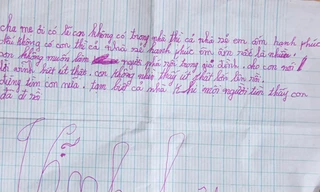 cha mẹ ơi có lẽ con không có trong nhà thì cả nhà sẽ êm ấm hạnh phúc
thì không có con thì cả nhà sẽ hạnh phúc êm ấm rất là nhiều.
con không muốn làm người phá rối trong gia đình. cho con nói
lời vĩnh biệt từ thân. con không muốn thấy
đừng tìm con nữa. tạm biệt cả nhà khi mọi người tìm thấy con
đã đi rồi